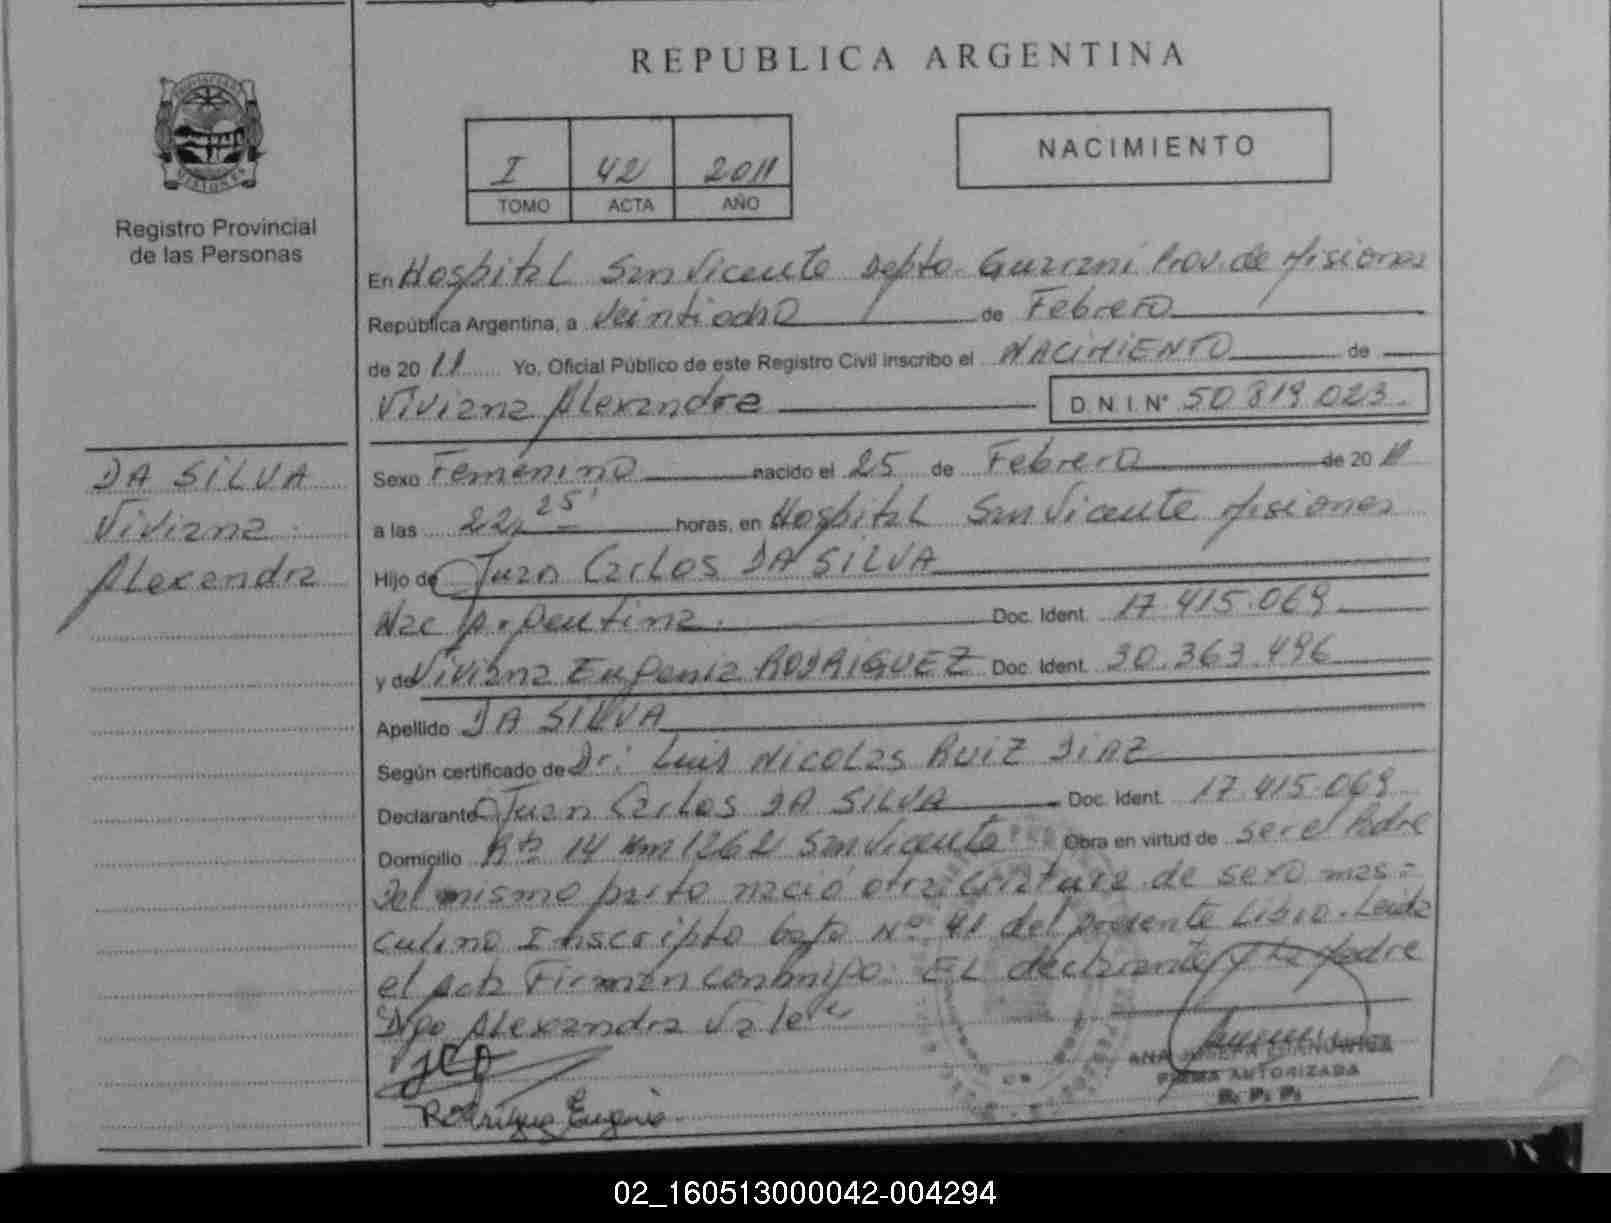 REPUBLICA ARGENTINA
I 42 2011
TOMO ACTA AÑO
NACIMIENTO
Registro Provincial
de las Personas
En Hospital San Vicente Depto. Guarani Prov. de Misiones
República Argentina, a Veintiocho de Febrero
de 2011 Yo, Oficial Público de este Registro Civil inscribo el NACIMIENTO de
Viviana Alexandra D.N.I.Nº 50 819 023.
DA SILVA
Viviana
Alexandra
Sexo Femenino nacido el 25 de Febrero de 2011
a las 22, 25' horas, en Hospital San Vicente Misiones
Hijo de Juan Carlos DA SILVA
Nac Argentina. Doc. Ident. 17.415.069
y de Viviana Eugenia RODRIGUEZ Doc. Ident. 30.363.496
Apellido DA SILVA
Según certificado de Dr: Luis Nicolas RUIZ DIAZ
Declarante Juan Carlos DA SILVA Doc. Ident. 17.415.069
Domicilio Rta 14 Km 1262 San Vicente Obra en virtud de ser el Padre
Del mismo parto nació otra criatura de sexo mas=
culino Inscripto bajo Nº 41 del presente Libro. Leida
el acta Firman conmigo: EL declarante y la Madre
Digo Alexandra Vale
JCD
Rodrigue Eugenia
ANA JOSEFA
FIRMA AUTORIZADA
R. P. P.
02_160513000042-004294